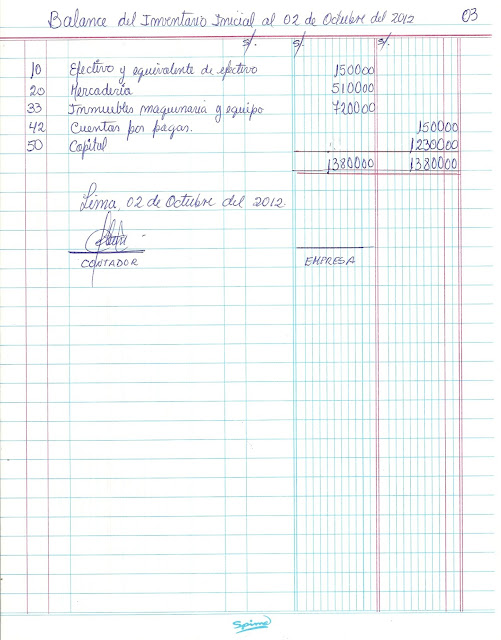 Balance del Inventario Inicial al 02 de Octubre del 2012 03
S/. S/. S/.
10 Efectivo y equivalente de efectivo 150000
20 Mercadería 510000
33 Inmuebles maquinaria y equipo 720000
42 Cuentas por pagar. 150000
50 Capital 1230000
1380000 1380000
Lima, 02 de Octubre del 2012.
CONTADOR EMPRESA
Spime